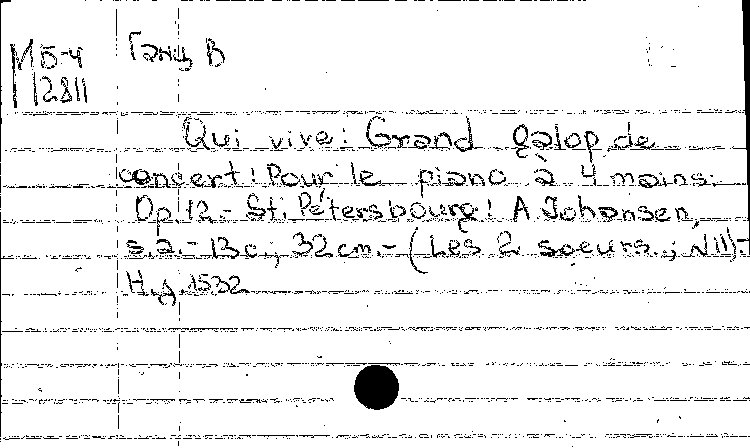 М Б-4 Ганц В
2811
Qui vive: Grand galop de
concert! Pour le piano à 4 mains.
Op.12 - St. Pétersbourg! A Johansen,
s.a. - 13 c.; 32 cm. - (Les 2 soeurs.; N11) -
Н.д. 1532